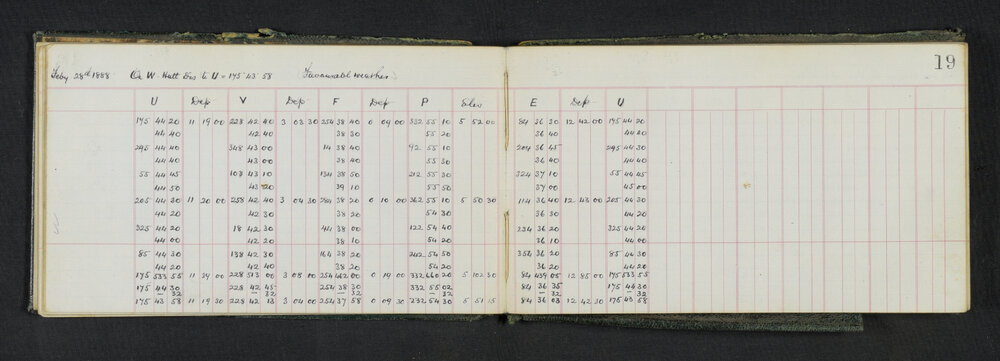 19
Feby 28th 1888 On W Hutt Des to U = 175° 43' 58 Favourabl weather
U Dep V Dep F Dep P Elev E Dep U
175 44 20 11 19 00 228 42 40 3 03 30 254 38 40 0 09 00 332 55 10 5 52 00 84 36 30 12 42 00 175 44 20
44 40 42 40 38 30 55 20 36 40 44 20
295 44 40 348 43 00 14 38 40 92 55 10 204 36 45 295 44 30
44 40 43 00 38 40 55 30 36 40 44 40
55 44 45 108 43 10 134 38 50 212 55 30 324 37 10 55 44 45
44 50 43 20 39 10 55 50 37 00 45 00
205 44 30 11 20 00 258 42 40 3 04 30 284 38 20 0 10 00 362 55 10 5 50 30 114 36 40 12 43 00 205 44 30
44 20 42 30 38 20 54 30 36 30 44 20
325 44 20 18 42 30 44 38 00 122 54 40 234 36 20 325 44 20
44 00 42 20 38 10 54 20 36 10 44 00
85 44 30 138 42 30 164 38 20 242 54 50 354 36 20 85 44 30
44 20 42 40 38 20 54 20 36 20 44 20
175 533 55 11 39 00 228 513 00 3 08 00 254 462 00 0 19 00 332 660 20 5 102 30 84 439 05 12 85 00 175 533 55
175 44 30 228 42 45 254 38 30 332 55 02 84 36 35 175 44 30
— 32 — 32 — 32 — 32 — 32 — 32
175 43 58 11 19 30 228 42 13 3 04 00 254 37 58 0 09 30 232 54 30 5 51 15 84 36 03 12 42 30 175 43 58